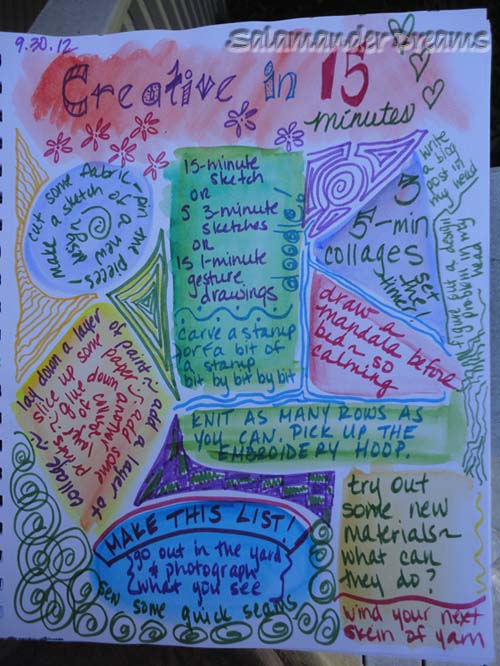 SalamanderDreams
9.30.12
Creative in 15
minutes
cut some fabric~ pin
the pieces~
make a sketch of a new
design
15-minute
sketch
OR
5 3-minute
sketches
OR
15 1-minute
gesture
drawings
doodle!
carve a stamp
or a bit of
a stamp
bit by bit by bit
3
5-min
collages
set the
timer!
write
a blog
post in
my head
figure out a design
problem in my
head
draw a
mandala before
bed~ so
calming
lay down a layer of paint~ add a layer of
collage~
slice up some paper
glue down
KNIT AS MANY ROWS AS
YOU CAN. PICK UP THE
EMBROIDERY HOOP.
MAKE THIS LIST!
go out in the yard
& photograph
what you see
sew some quick seams
try out
some new
materials~
what can
they do?
wind your next
skein of yarn